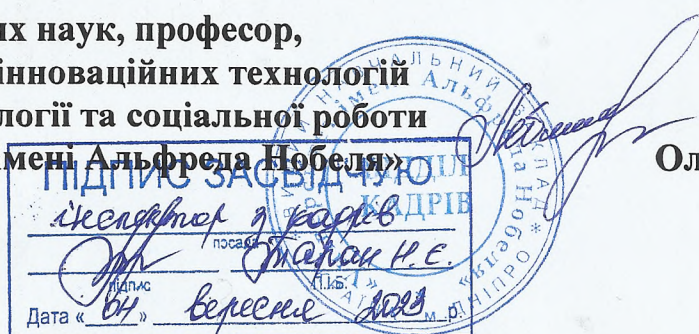 их наук, професор,
інноваційних технологій
логії та соціальної роботи
імені Альфреда Нобеля»
Ол
ПІДПИС ЗАСВІДЧУЮ
інспектор з кадрів
посада
Таран Н. Є.
підпис
П.І.Б.
Дата «04» вересня 2023 р.
НАВЧАЛЬНИЙ ЗАКЛАД * ДНІПРО
імені Альфреда Нобеля»
ВІДДІЛ
КАДРІВ